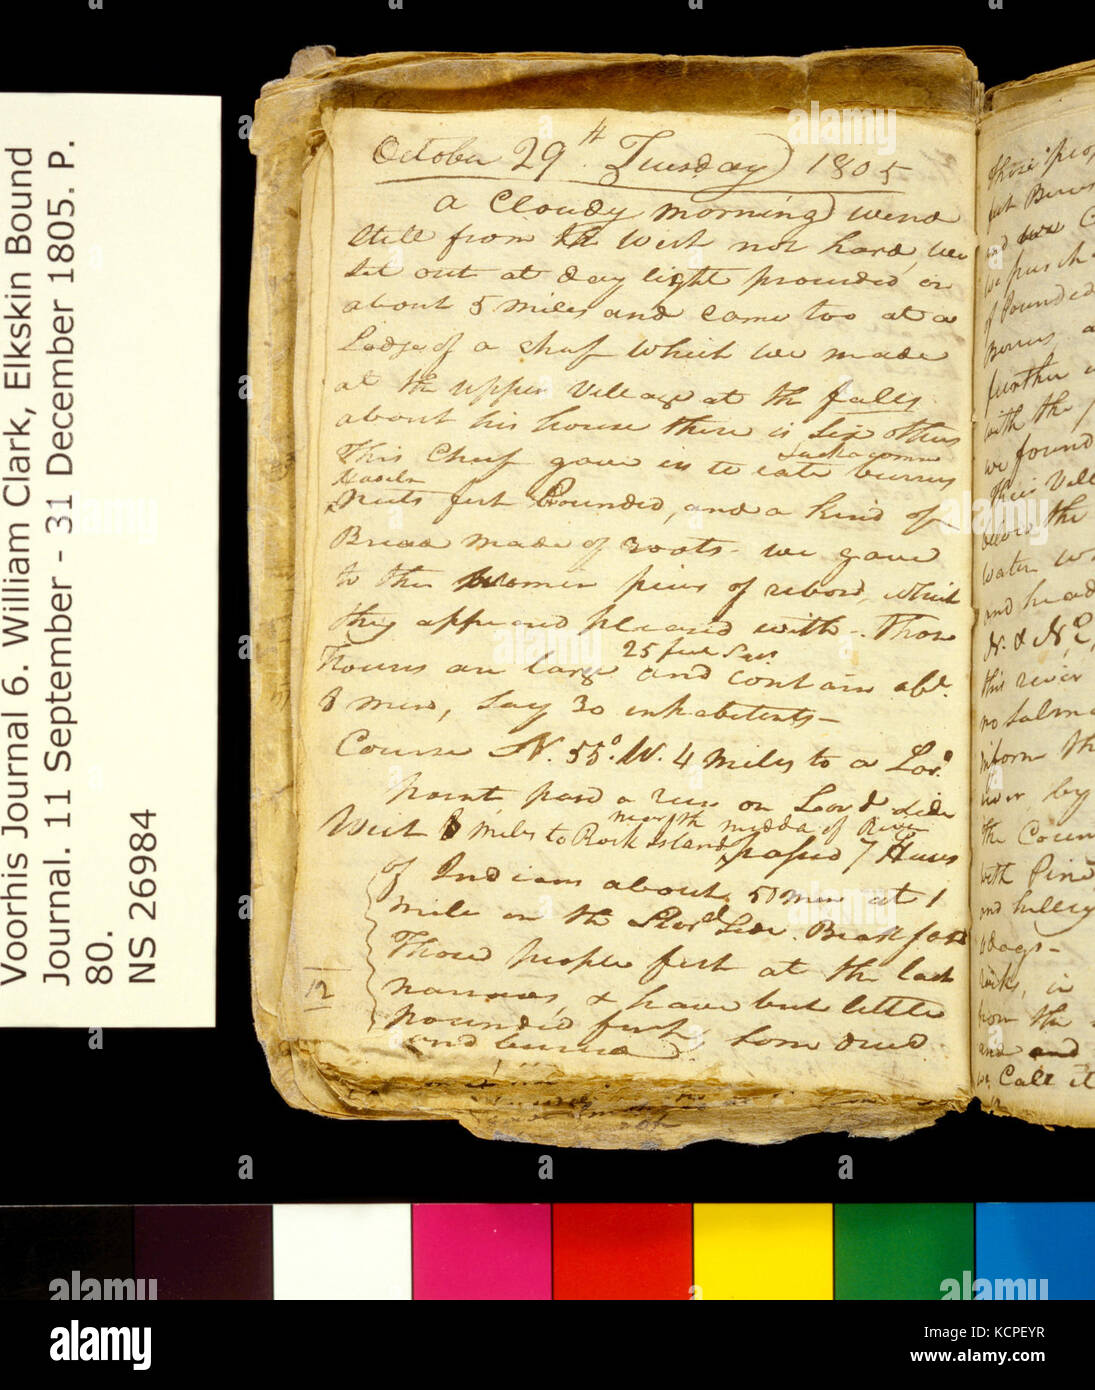 Voorhis Journal 6. William Clark, Elkskin Bound
Journal. 11 September - 31 December 1805. P.
80.
NS 26984
October 29th Tuesday 1805
a Cloudy morning wind
Still from the West not hard, we
Set out at day light proceeded on
about 5 miles and Came too at a
Lodge of a Chief which we made
at the upper Village at the falls
about his house there is Six others
This Chief gave us to eate Sackacomme burries
Hasel Nuts fish Pounded, and a kind of
Bread made of roots - we gave
to the Women pices of ribon, which
they appeared pleased with -. Those
houses are large 25 feet Sqr and contain abt.
8 men, Say 30 inhabitents -
Course N. 55°. W. 4 miles to a Lard.
point passd a run on Lard Side
West 8 miles to Rock Island near the midde of River passed 7 Huts
of Indians about 50 men at 1
mile on the Stard Side. Brackfast
Those people fish at the last
narrows, & have but little
pounded fish, Som dried
and burries.
12
these peop
fish Berris
and
we purch
of Pounded
Berris, a
further
with the
we found
this Vill
before the
water w
and head
N. & N. E,
this river
no Salmo
inform th
river by
the Coun
with Pine
and hilley
in
from the
and and
we Call it
alamy
Image ID: KCPEYR
www.alamy.com